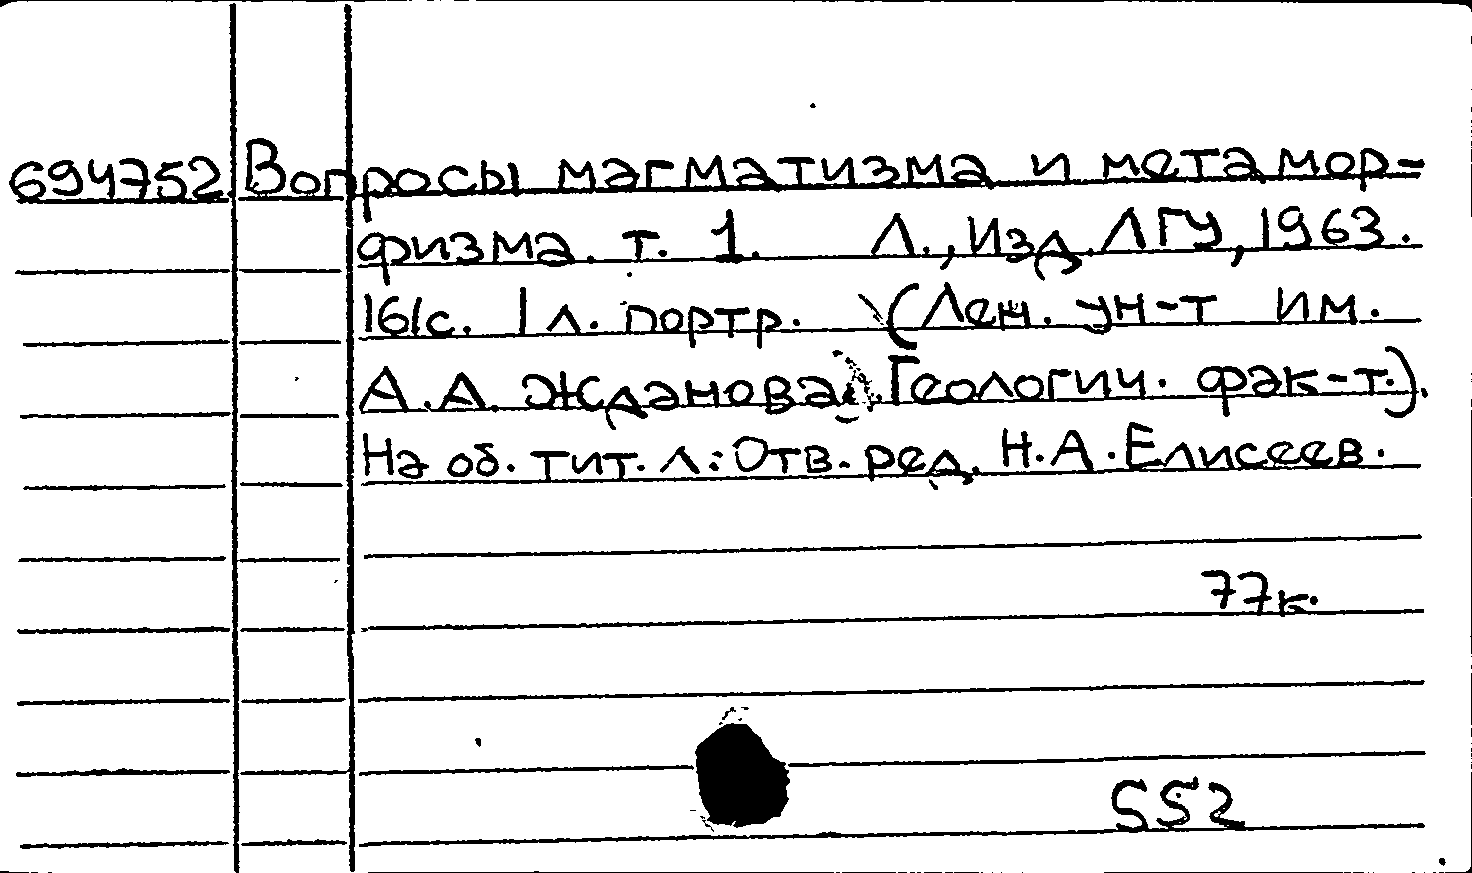 694752 Вопросы магматизма и метамор-
физма. т. 1. Л., Изд. ЛГУ, 1963.
161с. 1 л. портр. (Лен. ун-т им.
А. А. Жданова. Геологич. фак-т.).
На об. тит. л.: Отв. ред. Н. А. Елисеев.
77к.
552